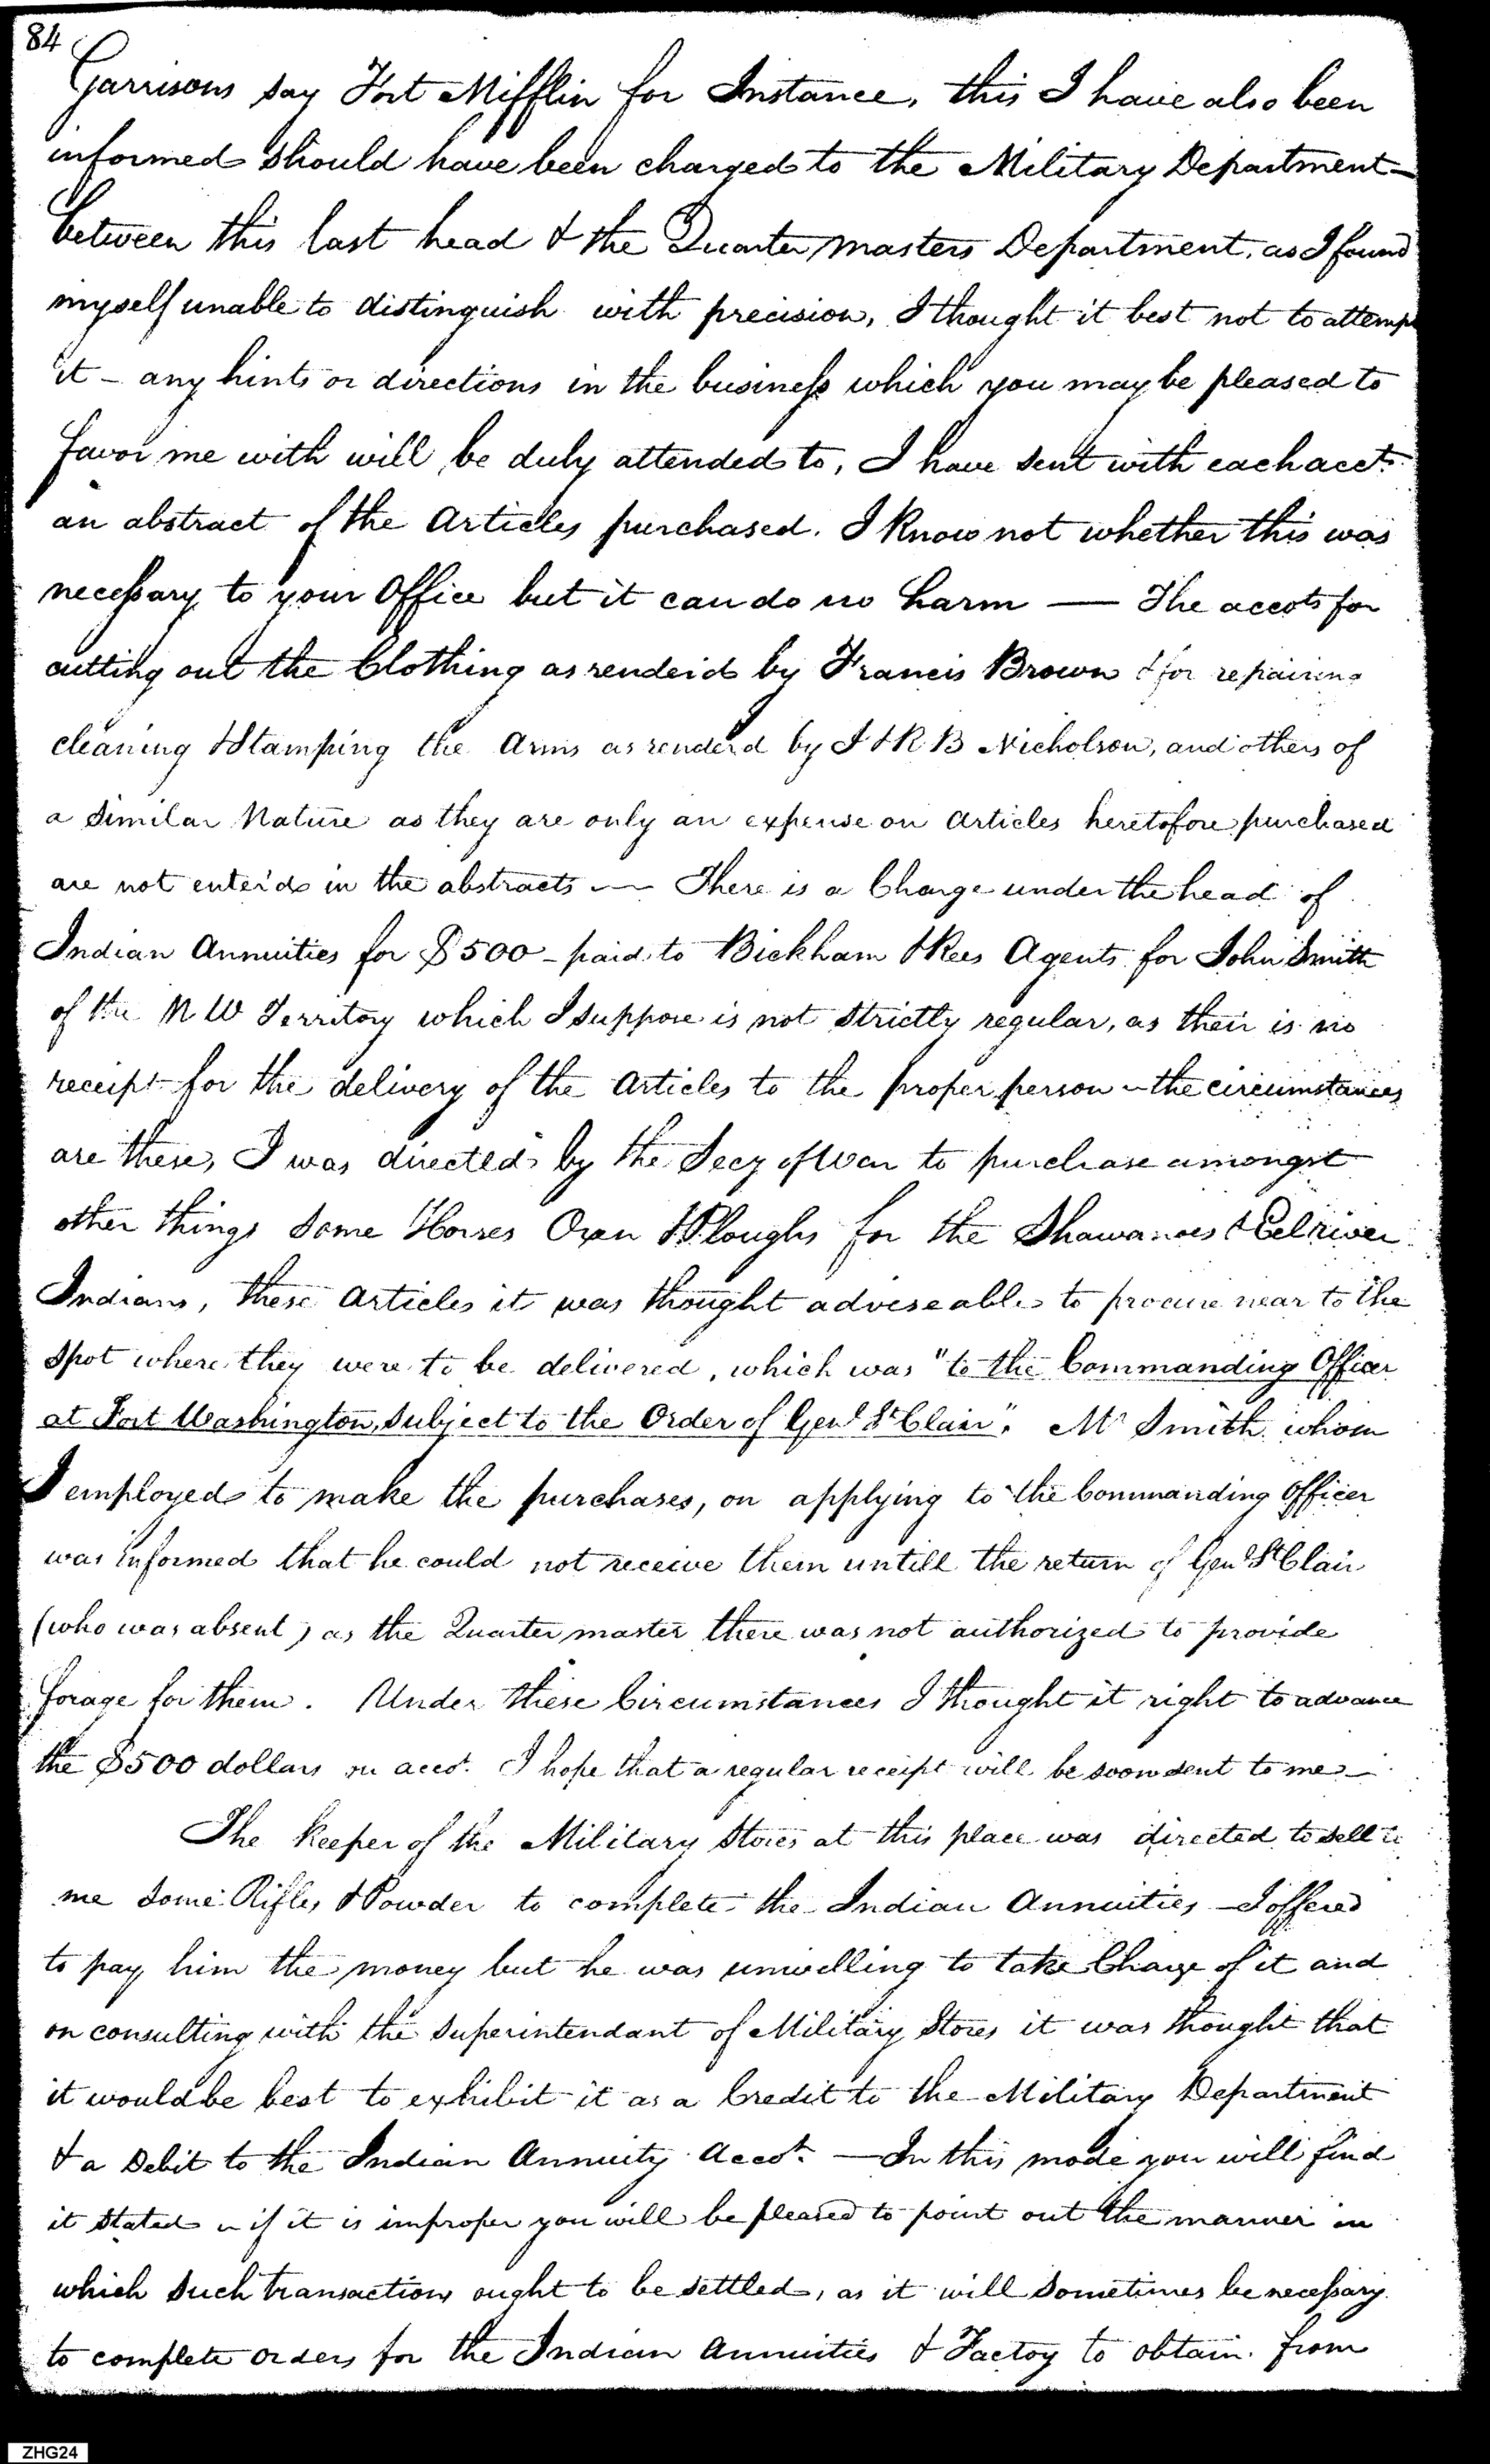 84
Garrisons say Fort Mifflin for Instance, this I have also been
informed should have been charged to the Military Department -
between this last head & the Quarter masters Department, as I found
myself unable to distinguish with precision, I thought it best not to attempt
it - any hints or directions in the business which you may be pleased to
favor me with will be duly attended to, I have sent with each acct.
an abstract of the Articles purchased. I know not whether this was
necessary to your Office but it can do no harm — The accots for
cutting out the Clothing as render'd by Francis Brown & for repairing
cleaning & Stamping the Arms as render'd by J & R B Nicholson, and others of
a Similar Nature as they are only an expense on Articles heretofore purchased
are not enter'd in the abstracts — There is a Charge under the head of
Indian Annuities for $500 - paid to Bickham & Rees Agents for John Smith
of the N W Territory which I suppose is not strictly regular, as their is no
receipt for the delivery of the Articles to the proper person - the circumstances
are these, I was directed by the Secy of War to purchase amongst
other things Some Horses Oxen & Ploughs for the Shawanoes & Eel river
Indians, these Articles it was thought adviseable to procure near to the
spot where they were to be delivered, which was "to the Commanding Officer
at Fort Washington, subject to the Order of Genl St Clair". Mr Smith whom
I employed to make the purchases, on applying to the Commanding Officer
was informed that he could not receive them untill the return of Genl St Clair
(who was absent) as the Quarter master there was not authorized to provide
forage for them. Under these Circumstances I thought it right to advance
the $500 dollars on accot. I hope that a regular receipt will be soon sent to me -
The Keeper of the Military Stores at this place was directed to sell to
me Some Rifles & Powder to complete the Indian Annuities - I offered
to pay him the money but he was unwilling to take Charge of it and
on consulting with the Superintendant of Military Stores it was thought that
it would be best to exhibit it as a Credit to the Military Department
& a Debit to the Indian Annuity Accot. — In this mode you will find
it Stated - if it is improper you will be pleased to point out the manner in
which Such transactions ought to be settled, as it will Sometimes be necessary
to complete Orders for the Indian Annuities & Factoy to obtain from
ZHG24